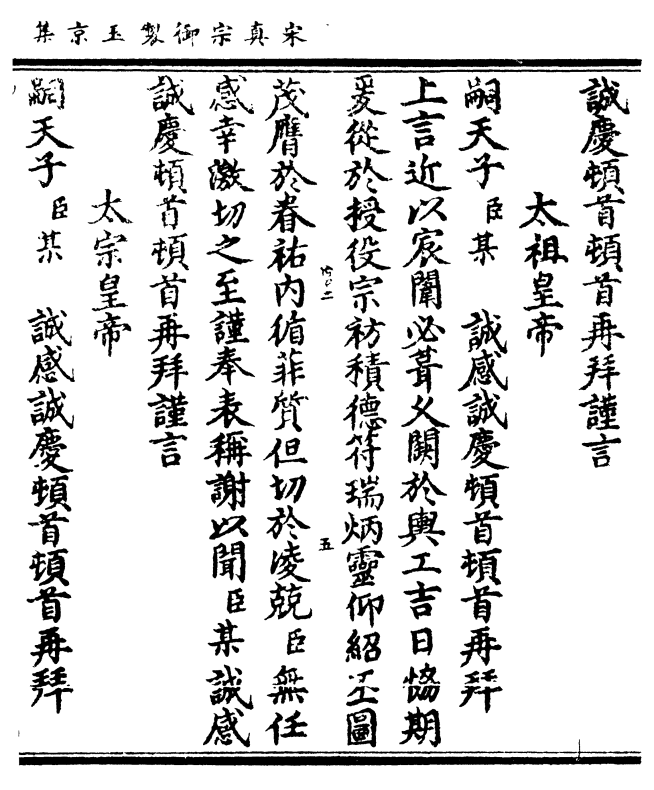 宋真宗御製玉京集
誠慶頓首頓首再拜謹言
太祖皇帝
嗣天子臣某 誠感誠慶頓首頓首再拜
上言近以宸闈必葺久闕於輿工吉日恊期
爰從於授役宗祊積德符瑞炳靈仰紹丕圖
茂膺於眷祐内循菲質但切於凌兢臣無任
感幸激切之至謹奉表稱謝以聞臣某誠感
誠慶頓首頓首再拜謹言
太宗皇帝
嗣天子臣某 誠感誠慶頓首頓首再拜
五